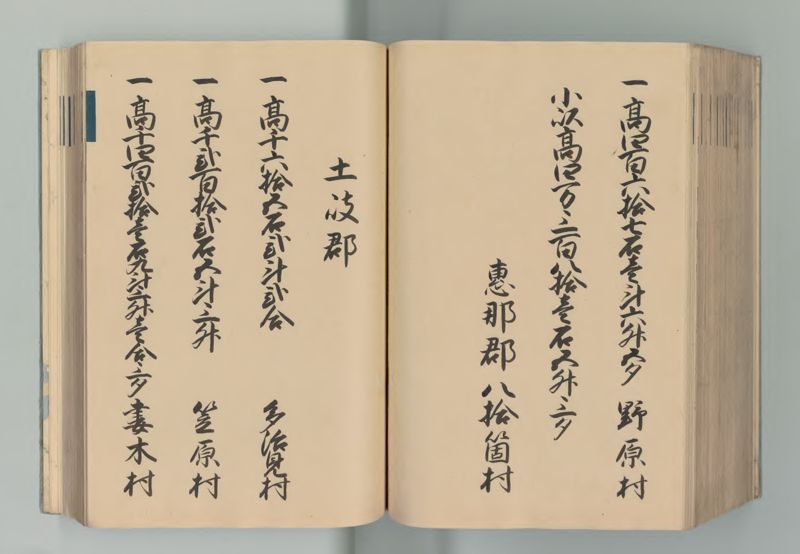 一高四百六拾七石壱斗六升五夕 野原村
小以高四万三百八拾壱石五升三夕
惠那郡八拾箇村
土岐郡
一高千六拾五石弐斗弐合 多治見村
一高千弐百拾弐石五斗三升 笠原村
一高千四百弐拾壱石九斗三升壱合三夕 妻木村